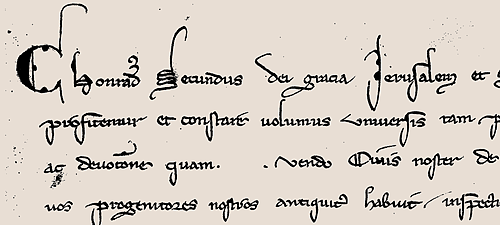 Chonrad Secundus dei gracia Jerusalem et
profitemur et constare volumus universis tam
ac devotone quam. vendo Civis noster de
nos progenitores nostros antiquit habuit inspecti